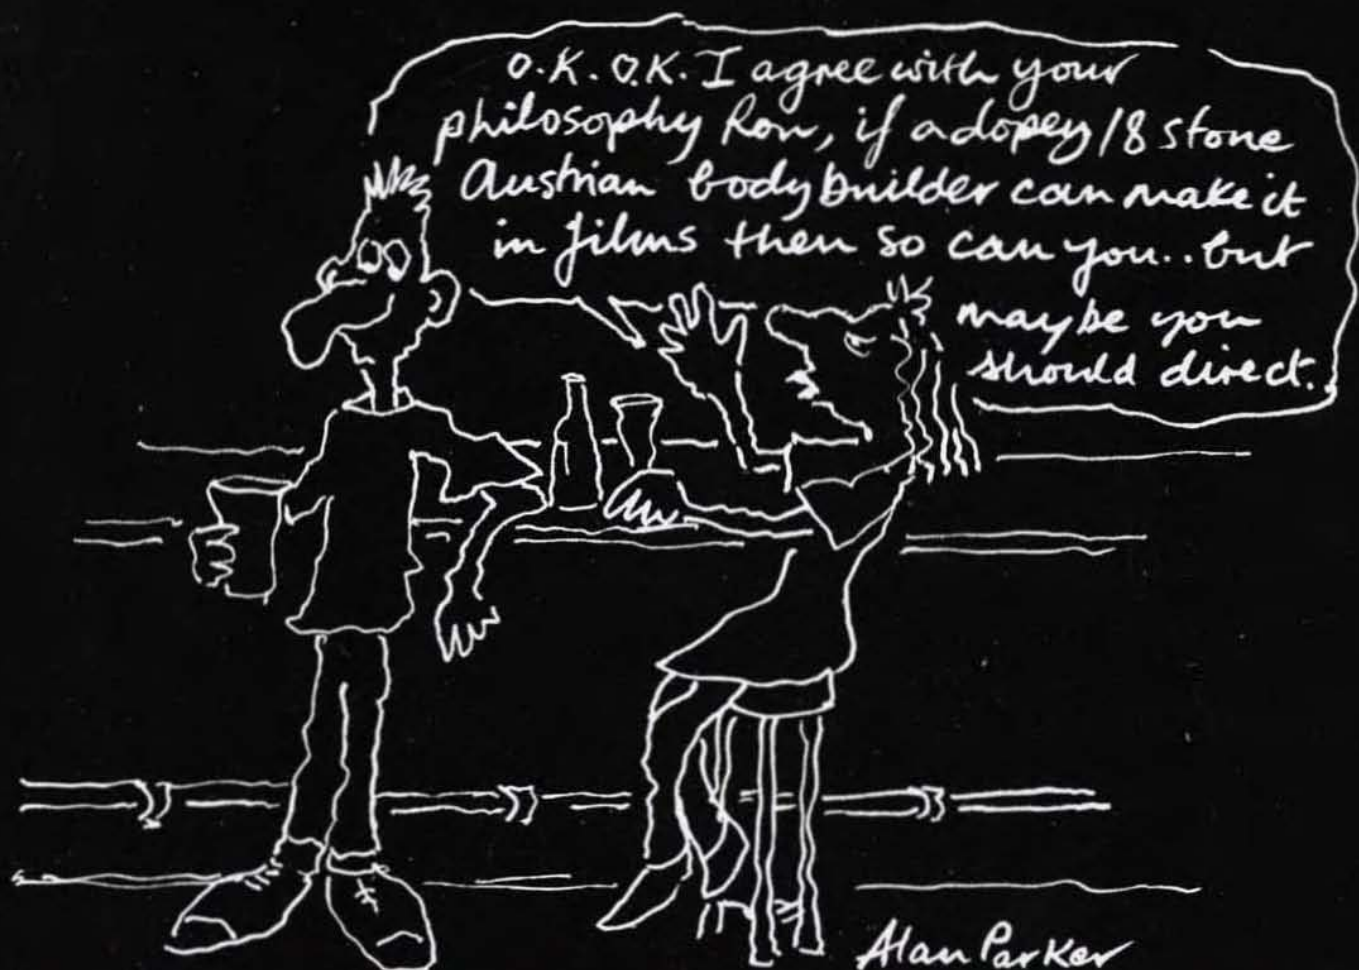 O.K. O.K. I agree with your
philosophy Ron, if a dopey 18 stone
Austrian bodybuilder can make it
in films then so can you.. but
maybe you
should direct.
Alan Parker